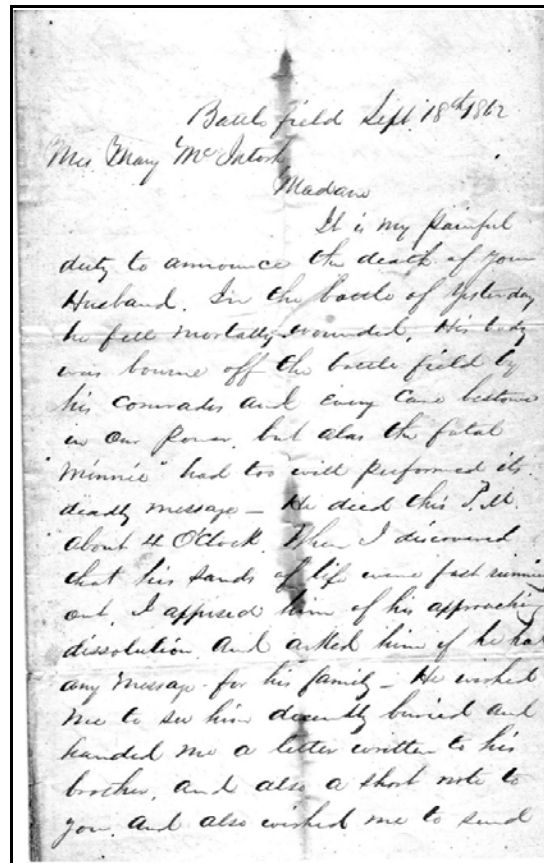 Battle field Sept. 18th 1862
Mrs Mary McIntosh
Madam
It is my painful
duty to announce the death of your
Husband. In the battle of yesterday
he fell mortally wounded, His body
was bourne off the battle field by
his comrades and every care bestowe
in our power, but alas the fatal
"Minnie" had too well performed its
deadly message — He died this P.M.
about 4 O'Clock. When I discovered
that his sands of life were fast runnin
out, I apprised him of his approaching
dissolution. And asked him if he had
any message for his family — He wished
me to see him decently buried and
handed me a letter written to his
brother, and also a short note to
you, and also wished me to send